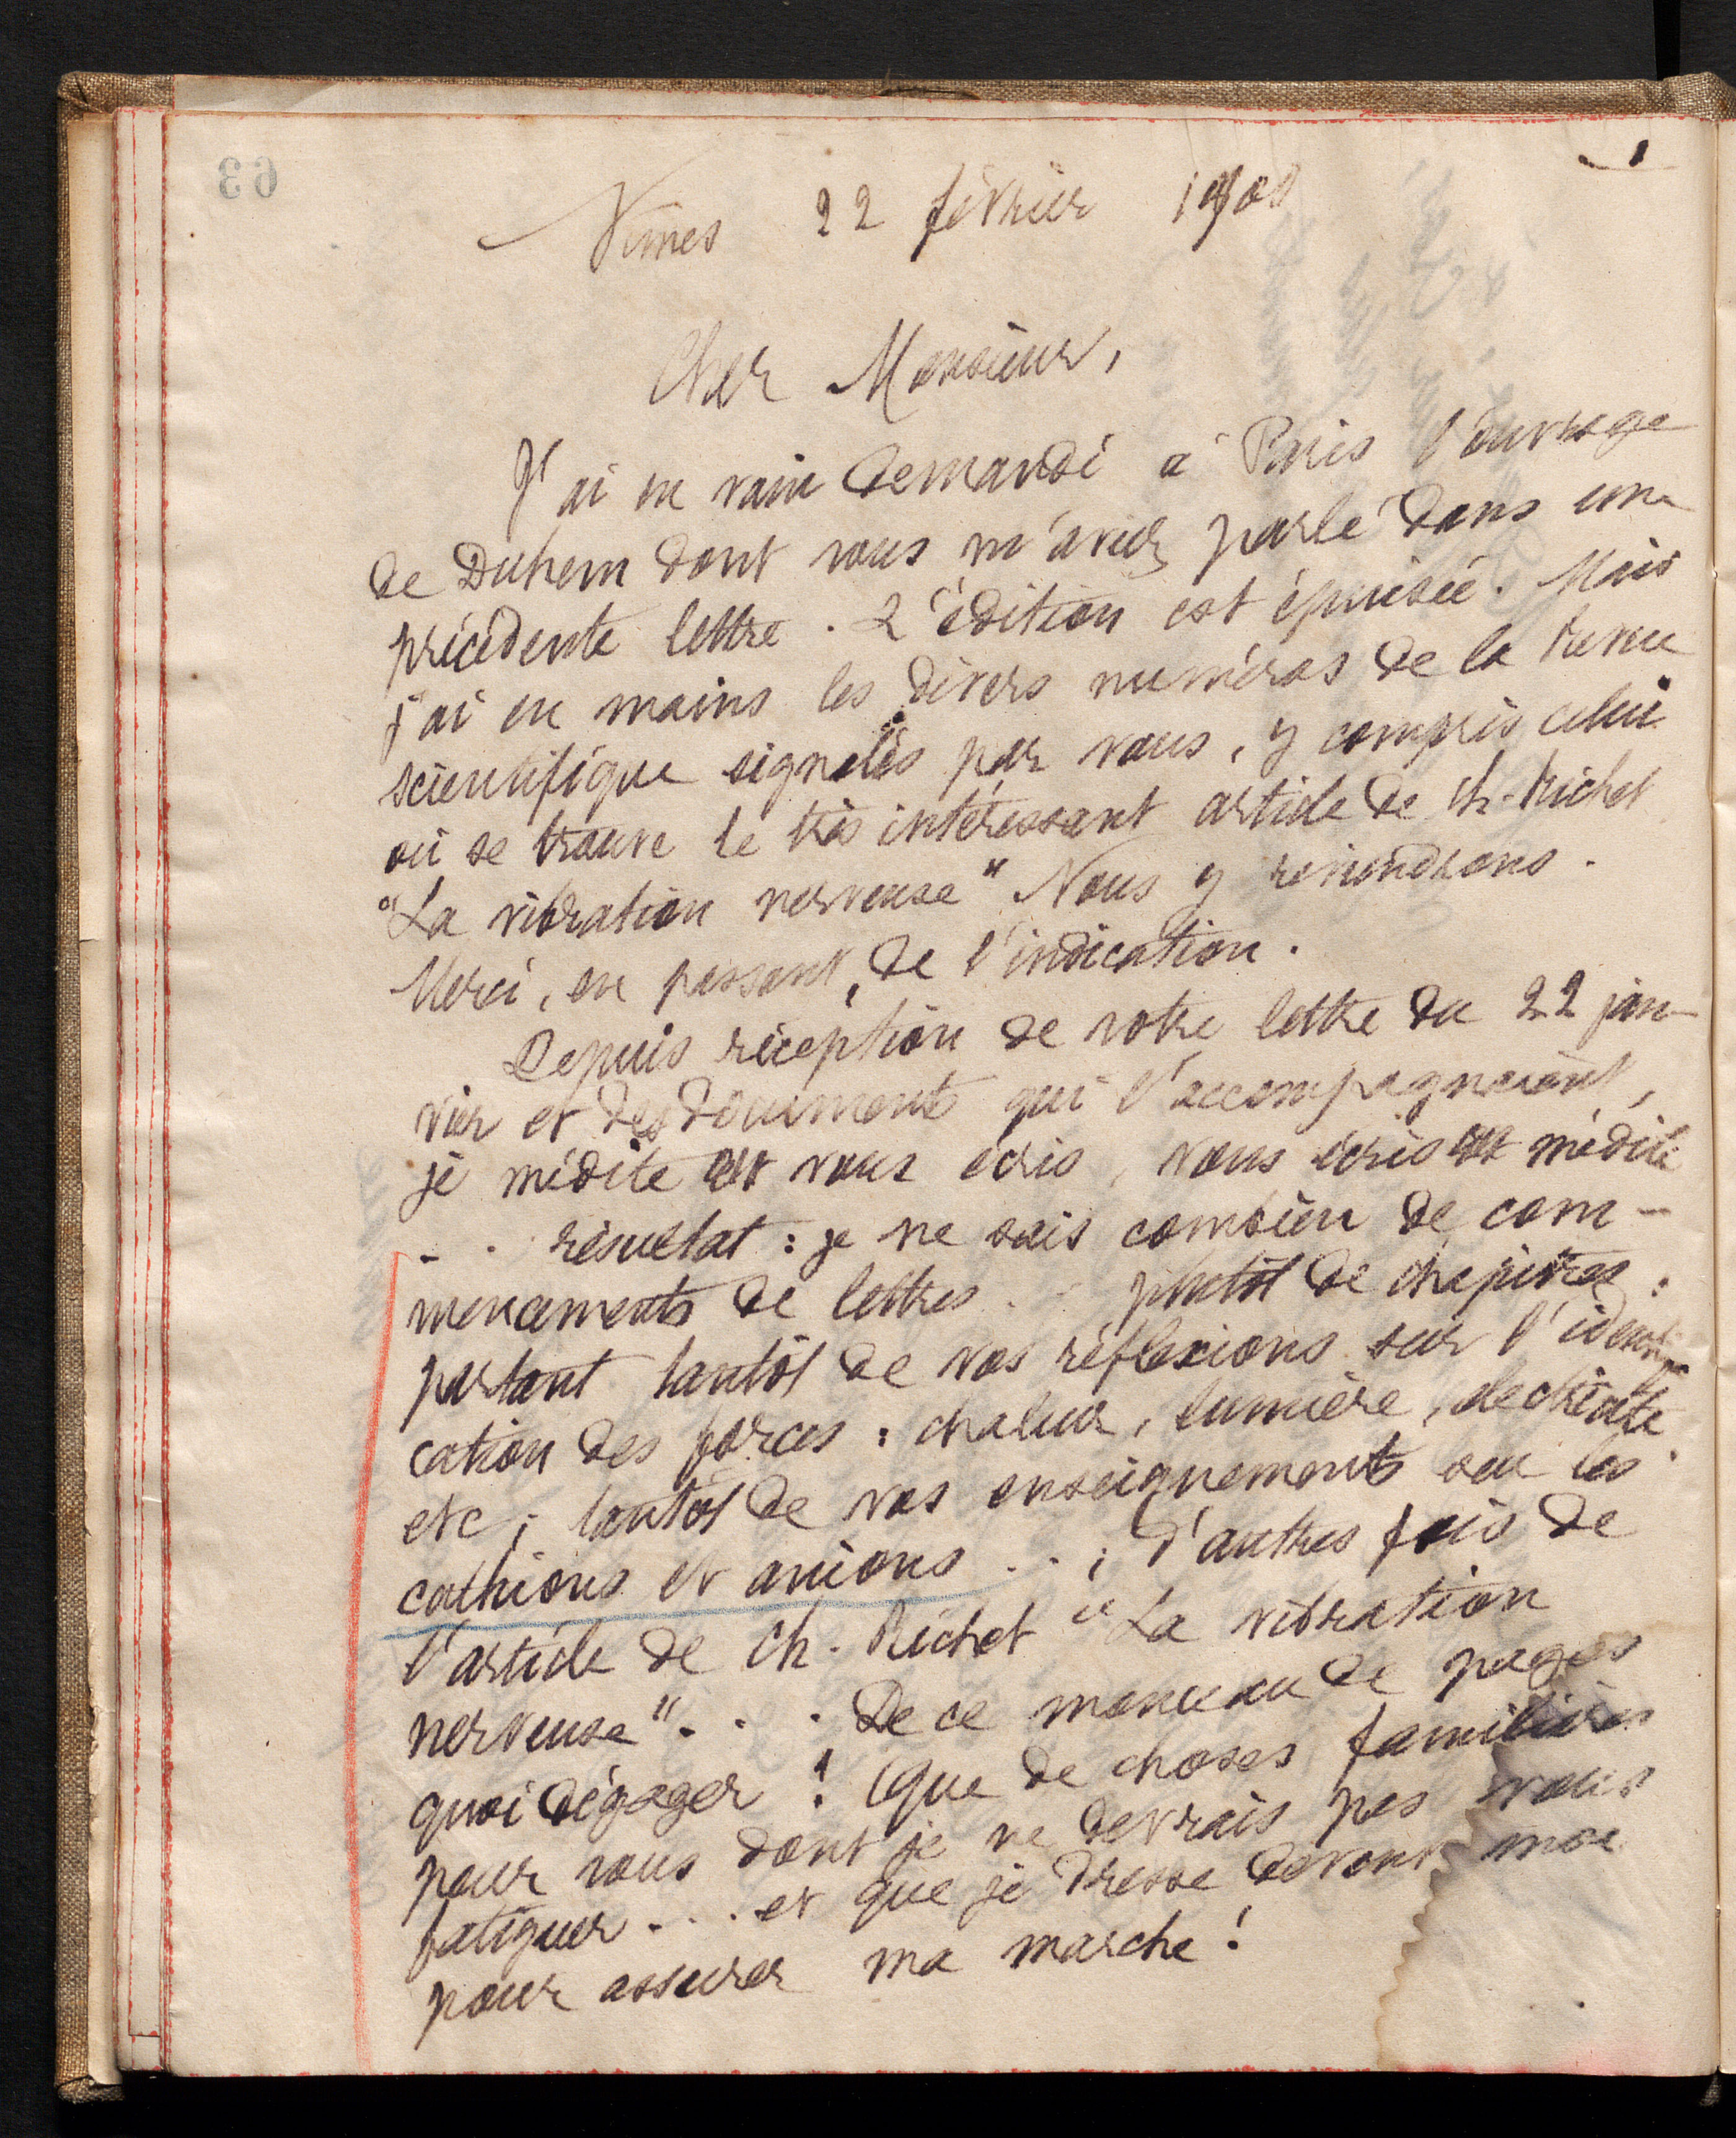 63
1
Nimes 22 février 1908
Cher Monsieur,
J'ai en vain demandé à Paris l'ouvrage
de Duhem dont vous m'aviez parlé dans une
précédente lettre. L'édition est épuisée. Mais
j'ai en mains les divers numéros de la revue
scientifique signalés par vous, y compris celui
où se trouve le très intéressant article de Ch. Richet
"La vibration nerveuse" Nous y reviendrons.
Merci, en passant, de l'indication.
Depuis réception de votre lettre du 22 jan-
vier et des documents qui l'accompagnaient,
je médite et vous écris, vous écris et médite
. . résultat : je ne sais combien de com-
mencements de lettres . . plutôt de chapitres :
partant tantôt de vos réflexions sur l'identifi
cation des forces : chaleur, lumière, electricité
etc ; tantôt de vos enseignements sur les
cathions et anions . . ; d'autres fois de
l'article de Ch. Richet "La vibration
nerveuse" . . . De ce monceau de pages
quoi dégager ! Que de choses familières
pour vous dont je ne devrais pas vous
fatiguer . . . et que je dresse devant moi
pour assurer ma marche !